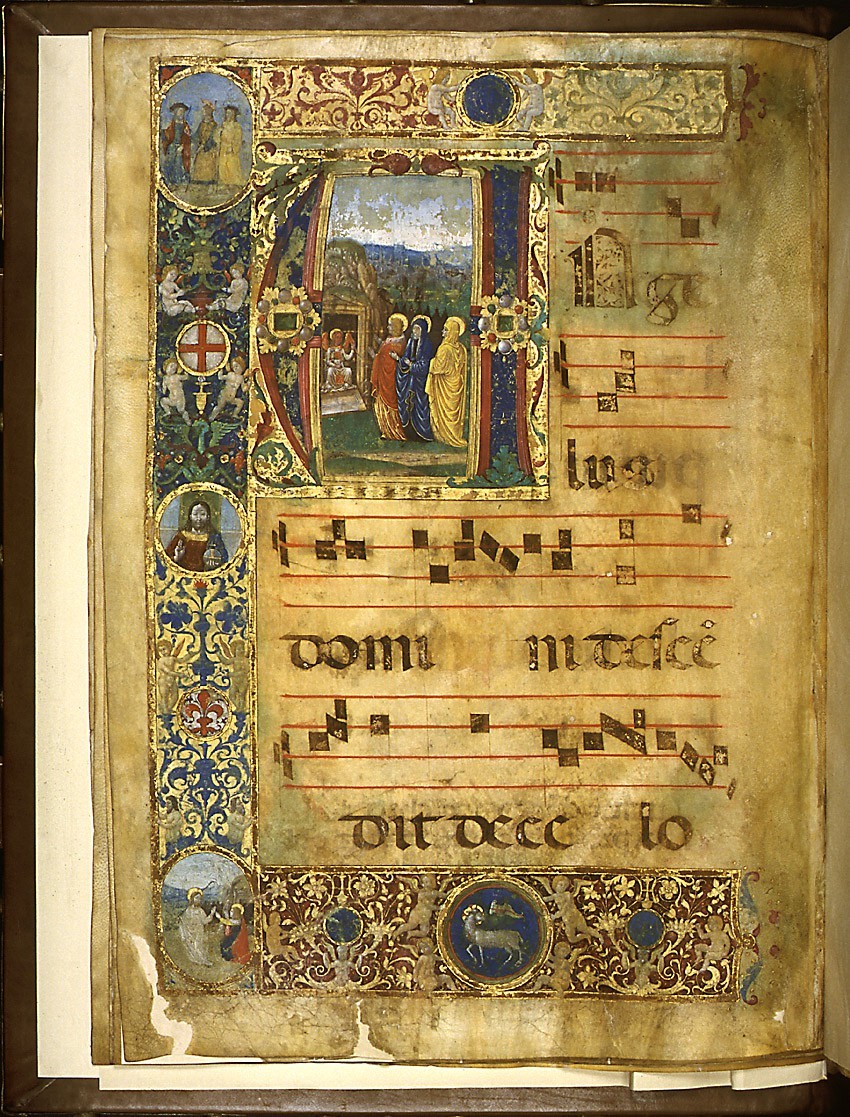 ANge
lus
domi ni descē
dit de ce lo